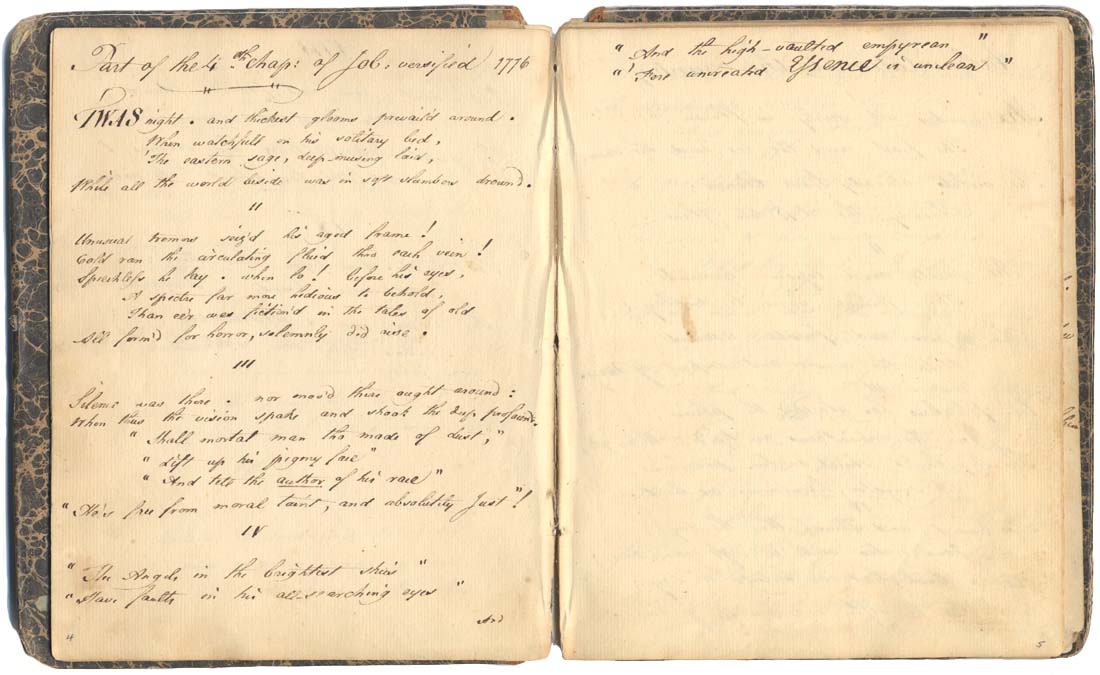 Part of the 4th chap: of Job, versified 1776
TWAS night. and thickest glooms prevail'd around.
When watchfull on his solitary bed,
The eastern sage, deep-musing laid,
While all the world beside was in soft slumbers drown'd.
II
Unusual tremors seiz'd his aged frame!
Cold ran the circulating fluid thro each vein!
Speechless he lay. when lo! before his eyes,
A spectre far more hedious to behold,
Than e'er was fiction'd in the tales of old
All form'd for horror, solemnly did rise.
III
Silence was there. nor mov'd there aught around:
When thus the vision spake and shook the deep profound.
"Shall mortal man tho made of dust,"
"Lift up his pigmy face"
"And tell the author of his race"
"He's free from moral taint, and absolutely Just"!
IV
"The Angels in the brightest skies"
"Have faults in his all-searching eyes"
And
4
"And the high-vaulted empyrean"
"'Fore uncreated Essence is unclean"
5